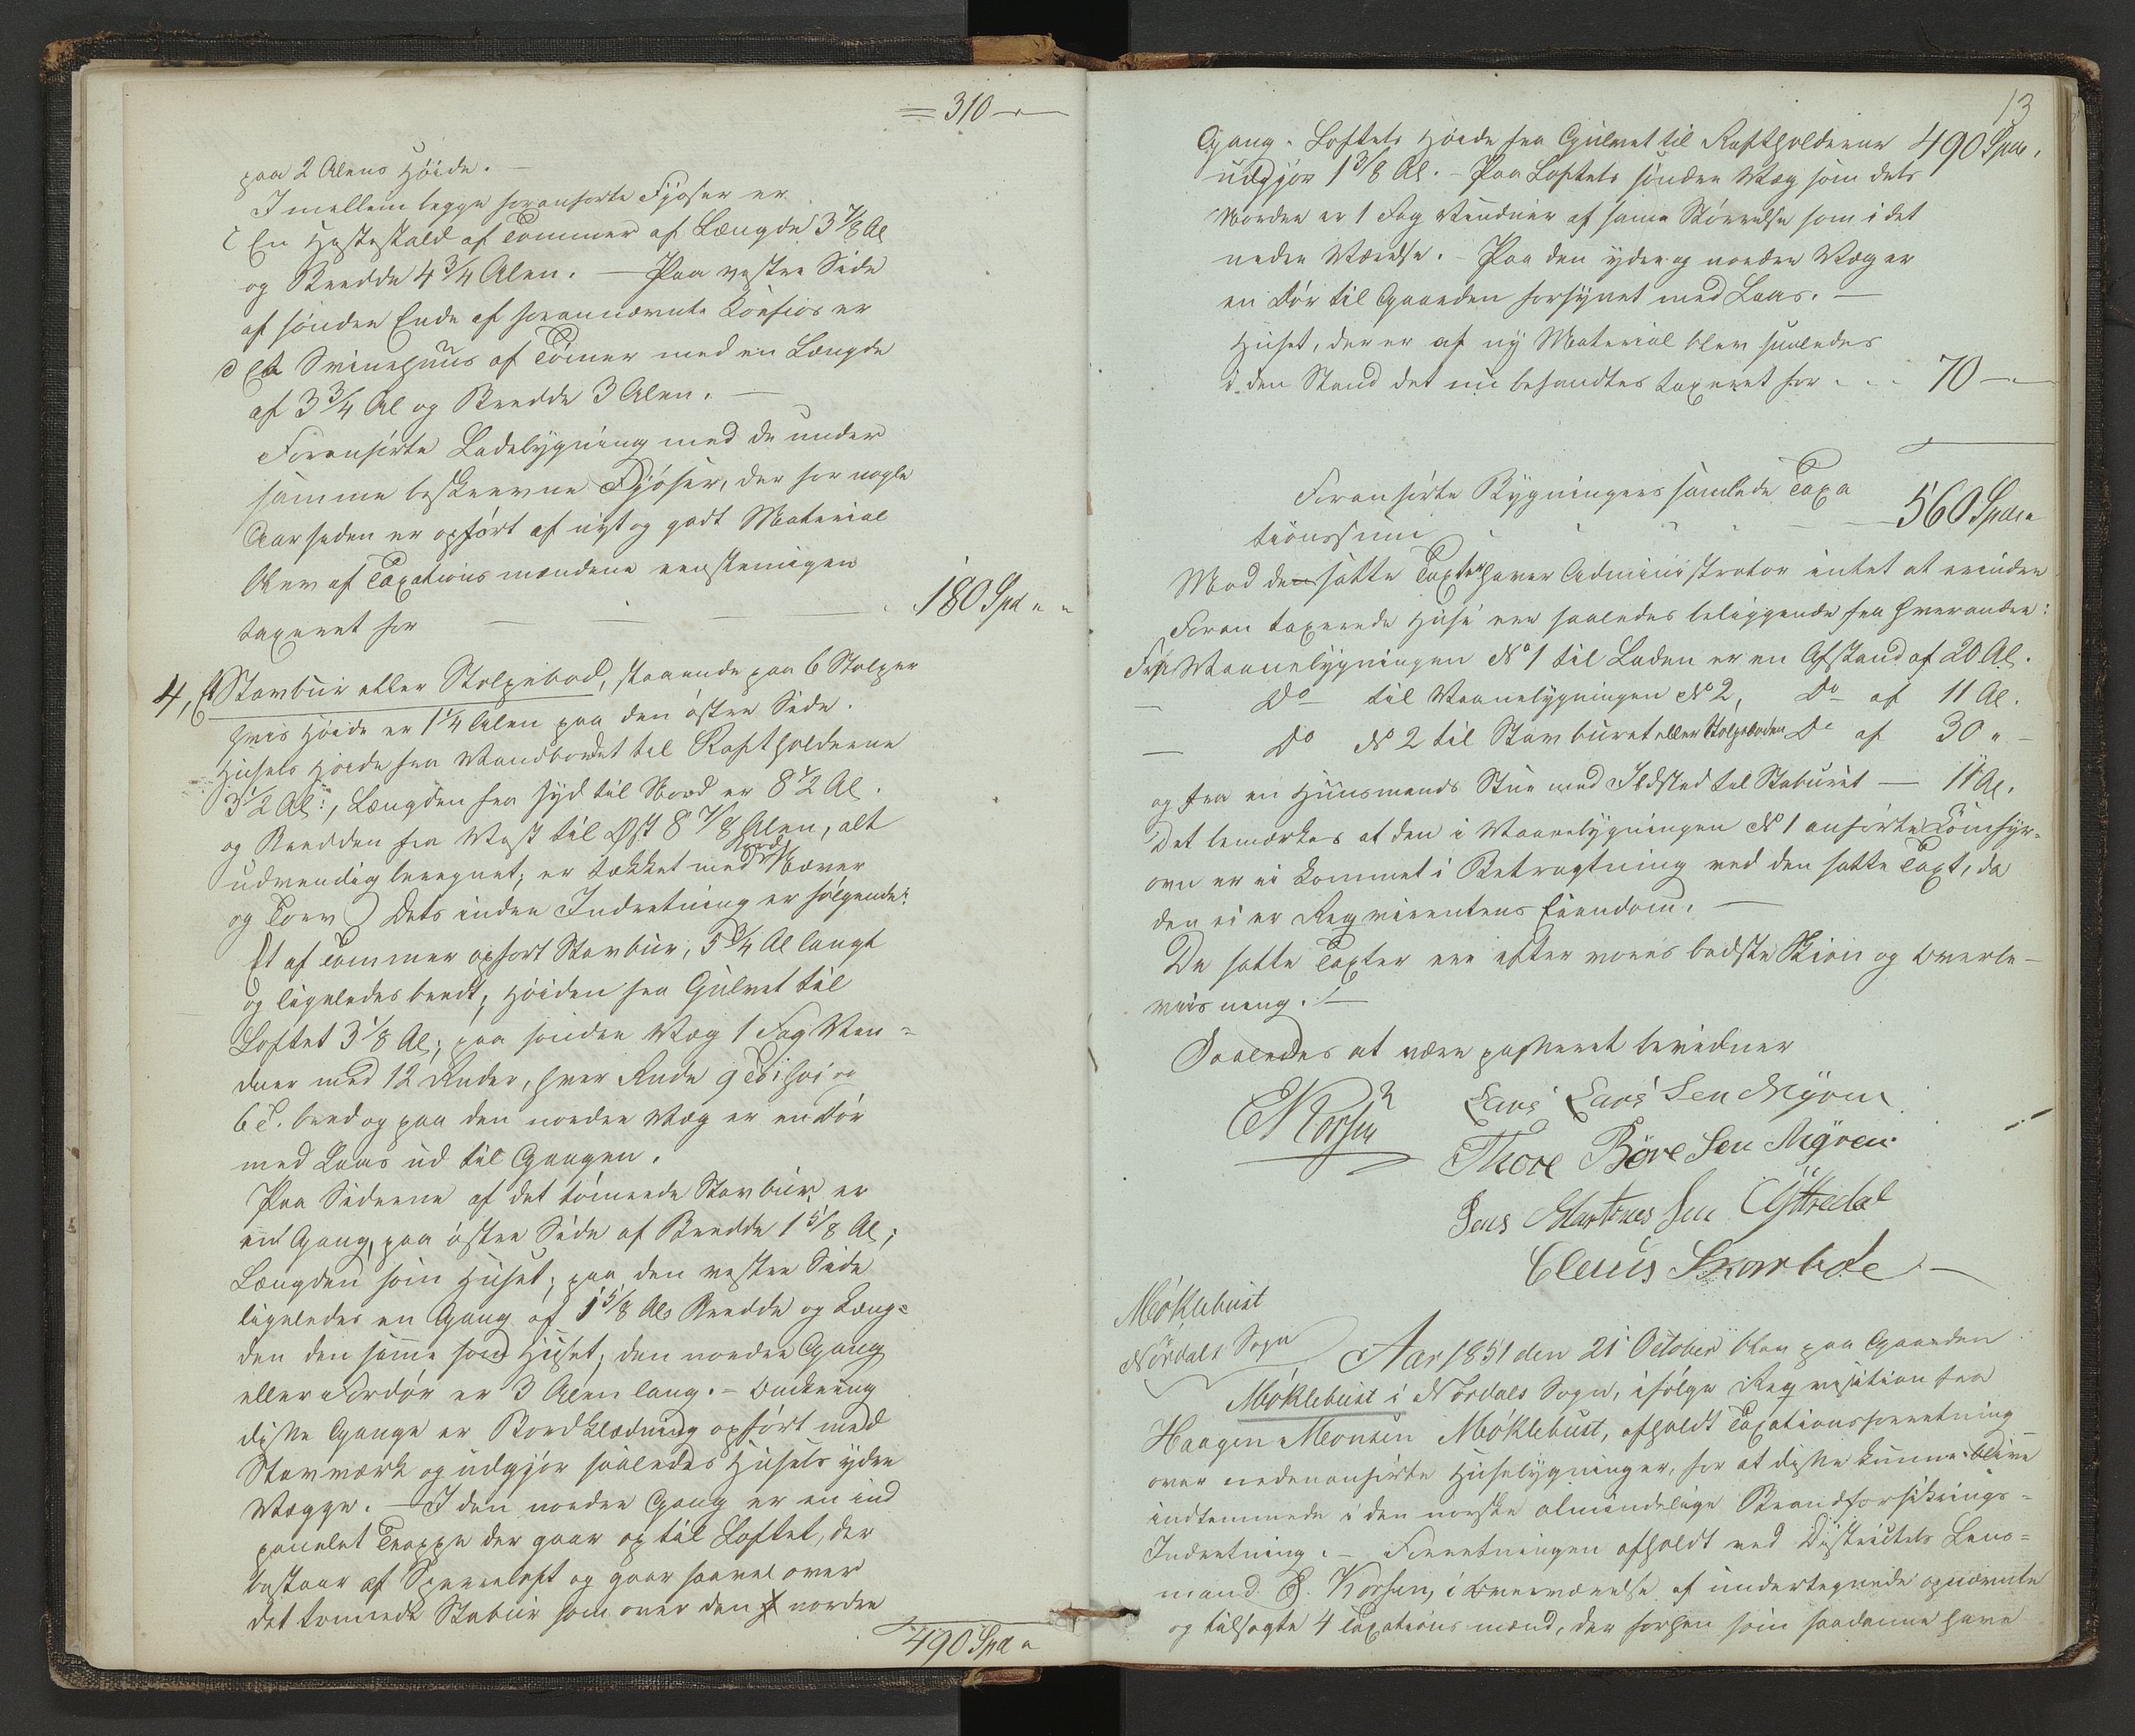 = 310 —
paa 2 Alens Høide. —
Imellem begge foranførte Fjøser er
c En Hestestald af Tømmer af Længde 3 7/8 Al
og Bredde 4 3/4 Alen. — Paa vestre Side
af søndre Ende af forannævnte Koefios er
d Et Svinehuus af Tømer med en Længde
af 3 3/4 Al og Bredde 3 Alen. —
Foranførte Ladebygning med de under
samme beskrevne Fjøser, der for nogle
Aar siden er opført af nyt og godt Material
blev af Taxationsmændene eenstemigen
taxeret for — — — — 180 Spd " "
4, Et Stavbuur eller Stolpebod, staaende paa 6 Stolper
hvis Høide er 1 1/4 Alen paa den østre Side.
Husets Høide fra Vandbordet til Raftholderne
3 1/2 Al:, Længden fra Syd til Nord er 8 1/2 Al.
og Bredden fra Vest til Øst 8 7/8 Alen, alt
udvendig beregnet; er tækket med Bord, Næver
og Torv) Dets indre Indretning er følgende:
Et af Tømmer opført Stavbuur, 5 3/4 Al langt
og ligeledes bredt; Høiden fra Gulvet til
Loftet 3 1/8 Al; paa søndre Væg 1 Fag Ven=
duer med 12 Ruder, hver Rude 9 To: høi og
6 T. bred og paa den nordre Væg er en Dør
med Laas ud til Gangen.
Paa Siderne af det tømrede Stavbuur er
en Gang, paa østre Side af Bredde 1 5/8 Al;
Længden som Huset; paa den vestre Side
ligeledes en Gang af 1 5/8 Als Bredde og Læng=
den den samme som Huset, den nordre Gang
eller Fordør er 3 Alen lang. — Omkring
disse Gange er Bordklædning opført med
Stavværk og udgjør saaledes Husets ydre
Vægge. — I den nordre Gang er en ind
panelet Trappe der gaar op til Loftet, der
bestaar af Sperreloft og gaar saavel over
det tømrede Stabuur som over den nordre
490 Spd "
13
Gang. Loftets Høide fra Gulvet til Raftholderne 490 Spd.
udgjør 1 3/8 Al. — Paa Loftets søndre Væg som dets
Nordre er 1 Fag Venduer af same Størrelse som i det
nedre Værelse. — Paa den ydre og nordre Væg er
en Dør til Gaarden forsynet med Laas. —
Huset, der er af ny Material blev saaledes
i den Stand det nu befandtes taxeret for . . . 70 —
Foranførte Bygningers samlede Taxa
tionssum — — 560 Spd "
Mod den satte Taxt haver Administrator intet at erindre
Foran taxerede Huse ere saaledes beliggende fra hverandre:
Fra Vaanebygningen No 1 til Laden er en Afstand af 20 Al.
— Do til Vaanebygningen No 2, Do af 11 Al.
— Do No 2 til Stavburet eller Stolpeboden Do af 30 " —
og fra en Huusmands Stue med Ildsted til Staburet — 11 Al.
Det bemærkes at den i Vaanebygningen No 1 anførte Komfyr=
ovn er ei kommet i Betragtning ved den satte Taxt, da
den ei er Reqvirentens Eiendom. —
De satte Taxter ere efter vores bedste Skiøn og Overbe—
viisning. —
Saaledes at være passeret bevidner
E Korsen Lars Lars Sen Myren
Thore Børe Sen Myren
Jens Martinus Sen Ystredal
Claus Skarbøe —
Møklebust
Nordals Sogn
Aar 1851 den 21 October blev paa Gaarden
Møklebust i Nordals Sogn, ifølge Reqvisition fra
Haagen Monsen Møklebust, afholdt Taxationsforretning
over nedenanførte Husebygninger, for at disse kunne blive
indtemmede i den norske almindelige Brandforsikrings=
Indretning. — Forretningen afholdt ved Districtets Lens=
mand E. Korsen, i Overværelse af undertegnede opnævnte
og tilsagte 4 Taxationsmænd, der forhen som saadanne have